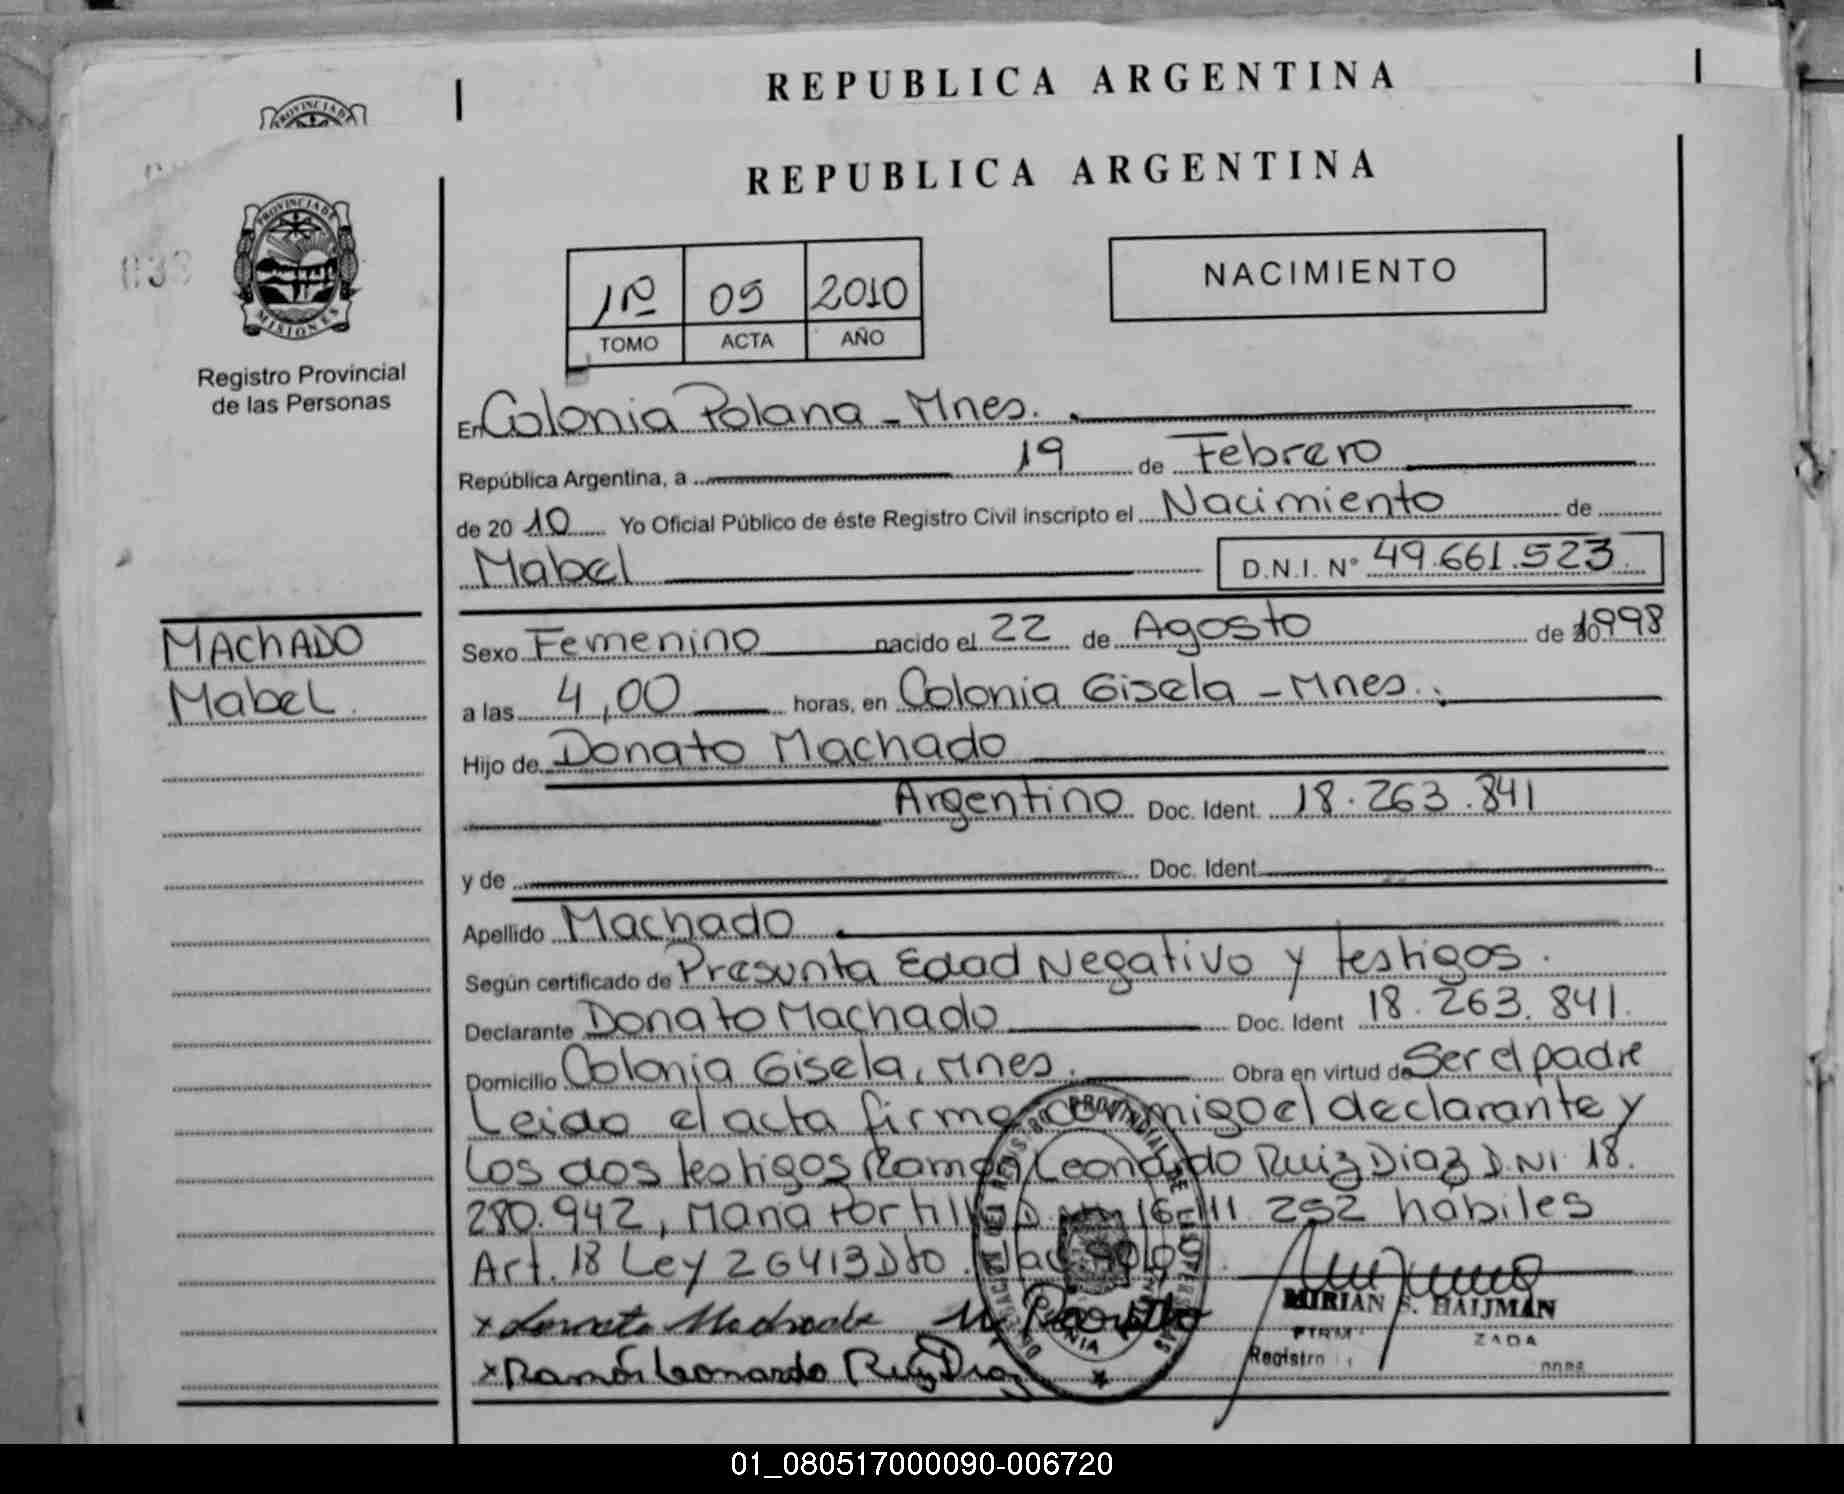 REPUBLICA ARGENTINA
PROVINCIA DE
REPUBLICA ARGENTINA
PROVINCIA DE
MISIONES
033
Registro Provincial
de las Personas
1º 05 2010
TOMO ACTA AÑO
NACIMIENTO
En Colonia Polana - Mnes.
República Argentina, a 19 de Febrero
de 20 10 Yo Oficial Público de éste Registro Civil inscripto el Nacimiento de
Mabel D.N.I. Nº 49.661.523
MAChADO
Mabel
Sexo Femenino nacido el 22 de Agosto de 1998
a las 4,00 horas, en Colonia Gisela - Mnes.
Hijo de Donato Machado
Argentino Doc. Ident. 18.263.841
y de Doc. Ident
Apellido Machado
Según certificado de Presunta Edad Negativo y testigos.
Declarante Donato Machado Doc. Ident 18.263.841.
Domicilio Colonia Gisela, Mnes. Obra en virtud de Ser el padre
Leido el acta firma conmigo el declarante y
los dos testigos Ramon Leonardo Ruiz Diaz D.NI 18.
280.942, Maria Portillo 252 hábiles
Art. 18 Ley 26413 Dto.
x Donato Machado
MIRIAN S. HAIJMAN
x Ramón Leonardo Ruiz Diaz
Registro
01_080517000090-006720